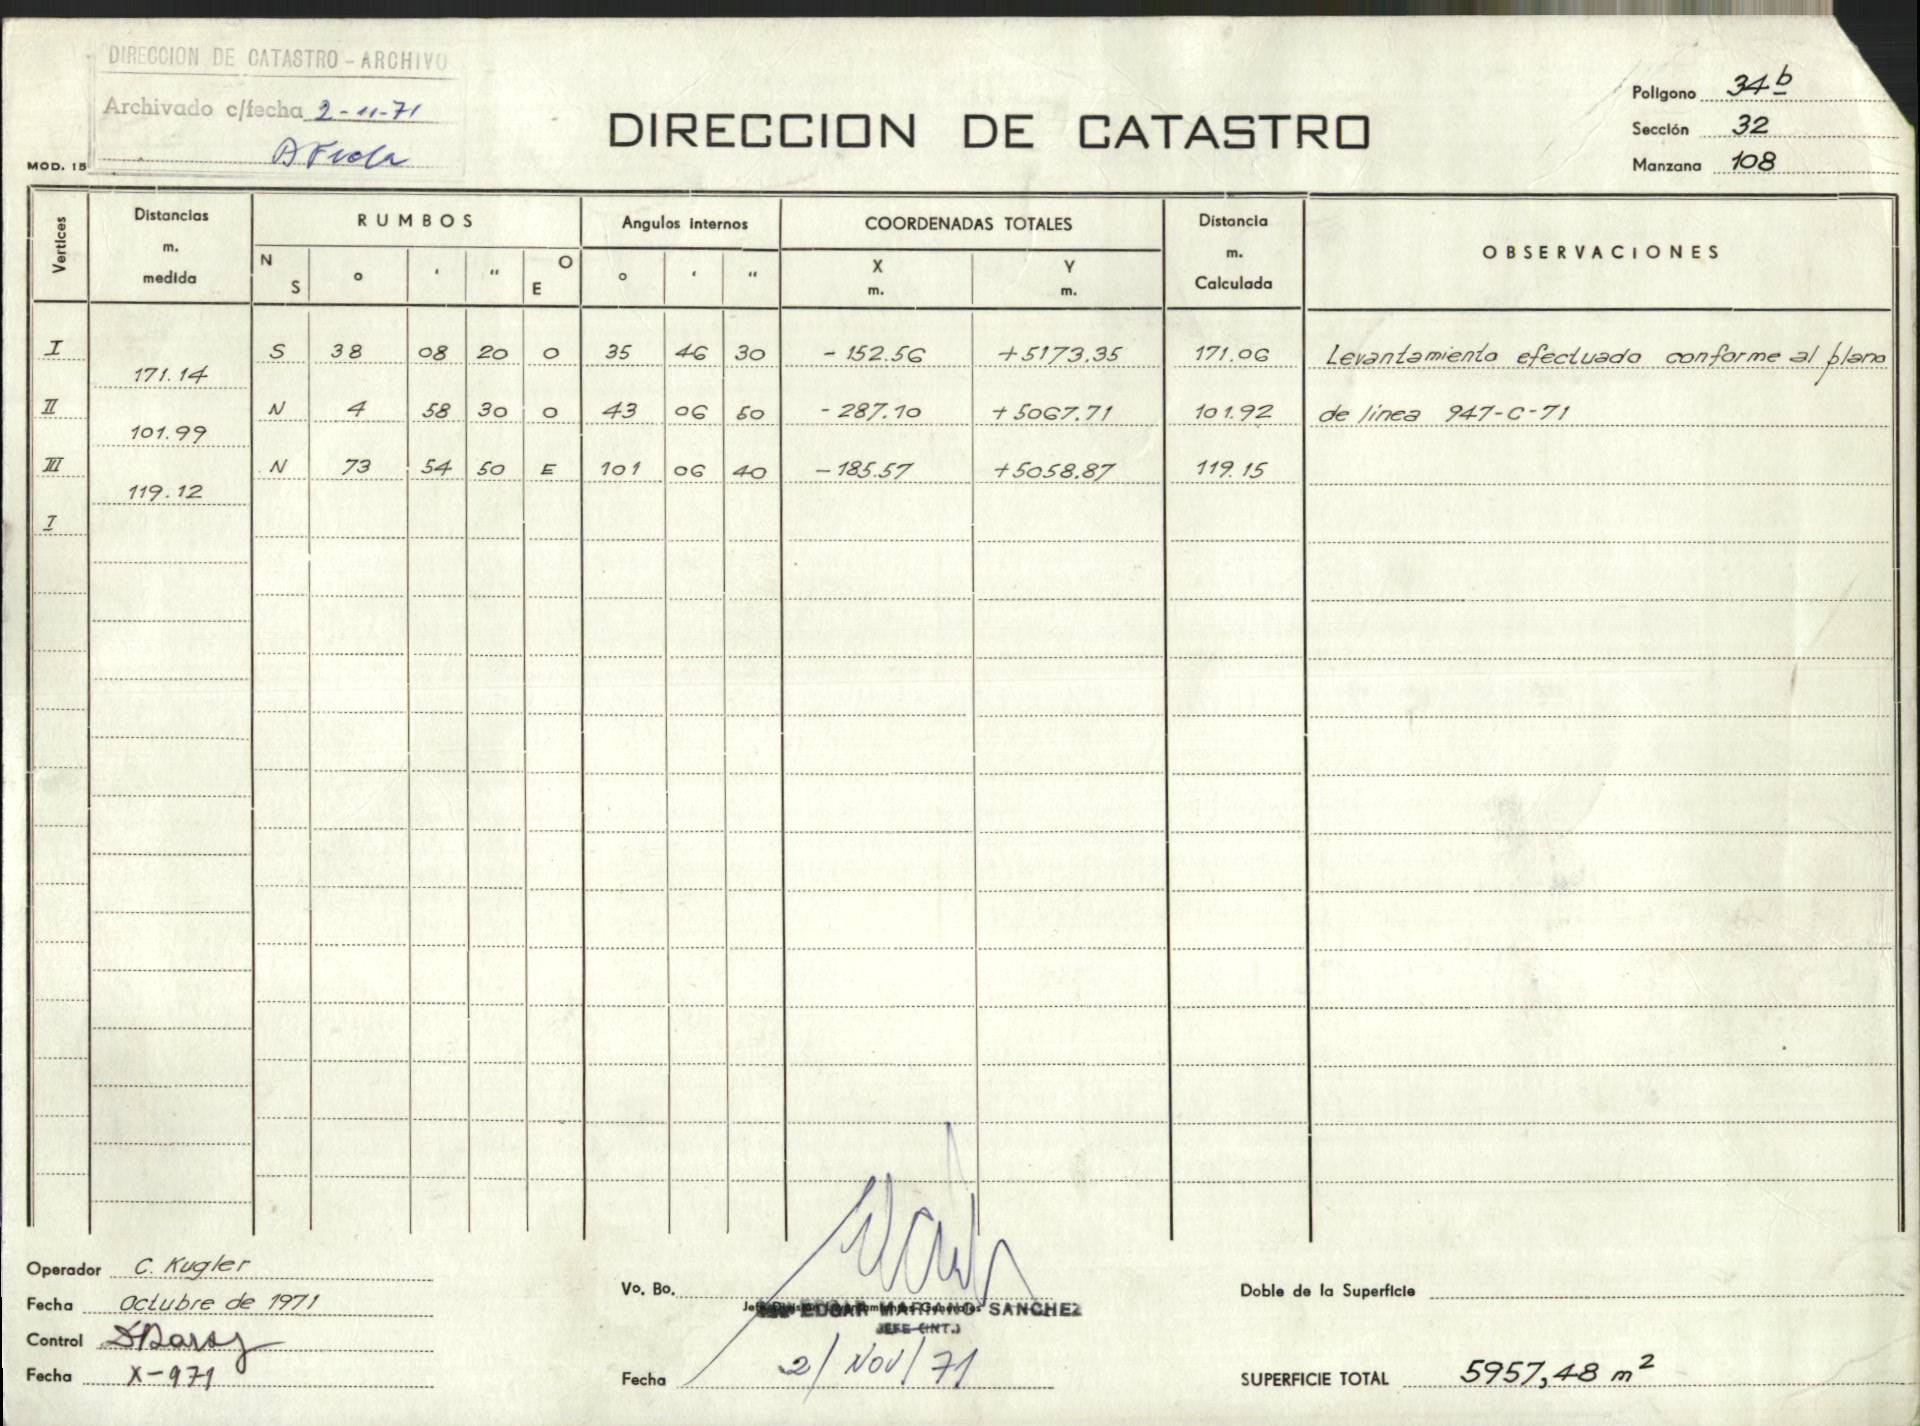 DIRECCION DE CATASTRO - ARCHIVO
Archivado c/fecha 2-11-71
MOD. 15
DIRECCION DE CATASTRO
Polígono 34 b
Sección 32
Manzana 108
Vertices Distancias m. medida RUMBOS Angulos internos COORDENADAS TOTALES Distancia m. Calculada OBSERVACIONES
N S ° ' " O E ° ' " X m. Y m.
I S 38 08 20 O 35 46 30 -152.56 +5173.35 171.06 Levantamiento efectuado conforme al plano
171.14
II N 4 58 30 O 43 06 50 -287.10 +5067.71 101.92 de línea 947-C-71
101.99
III N 73 54 50 E 101 06 40 -185.57 +5058.87 119.15
119.12
I
Operador C. Kugler
Fecha Octubre de 1971
Control
Fecha X-971
Vo. Bo.
EDGAR MARIANO SANCHEZ
JEFE (INT.)
Fecha 2/NOV/71
Doble de la Superficie
SUPERFICIE TOTAL 5957,48 m²